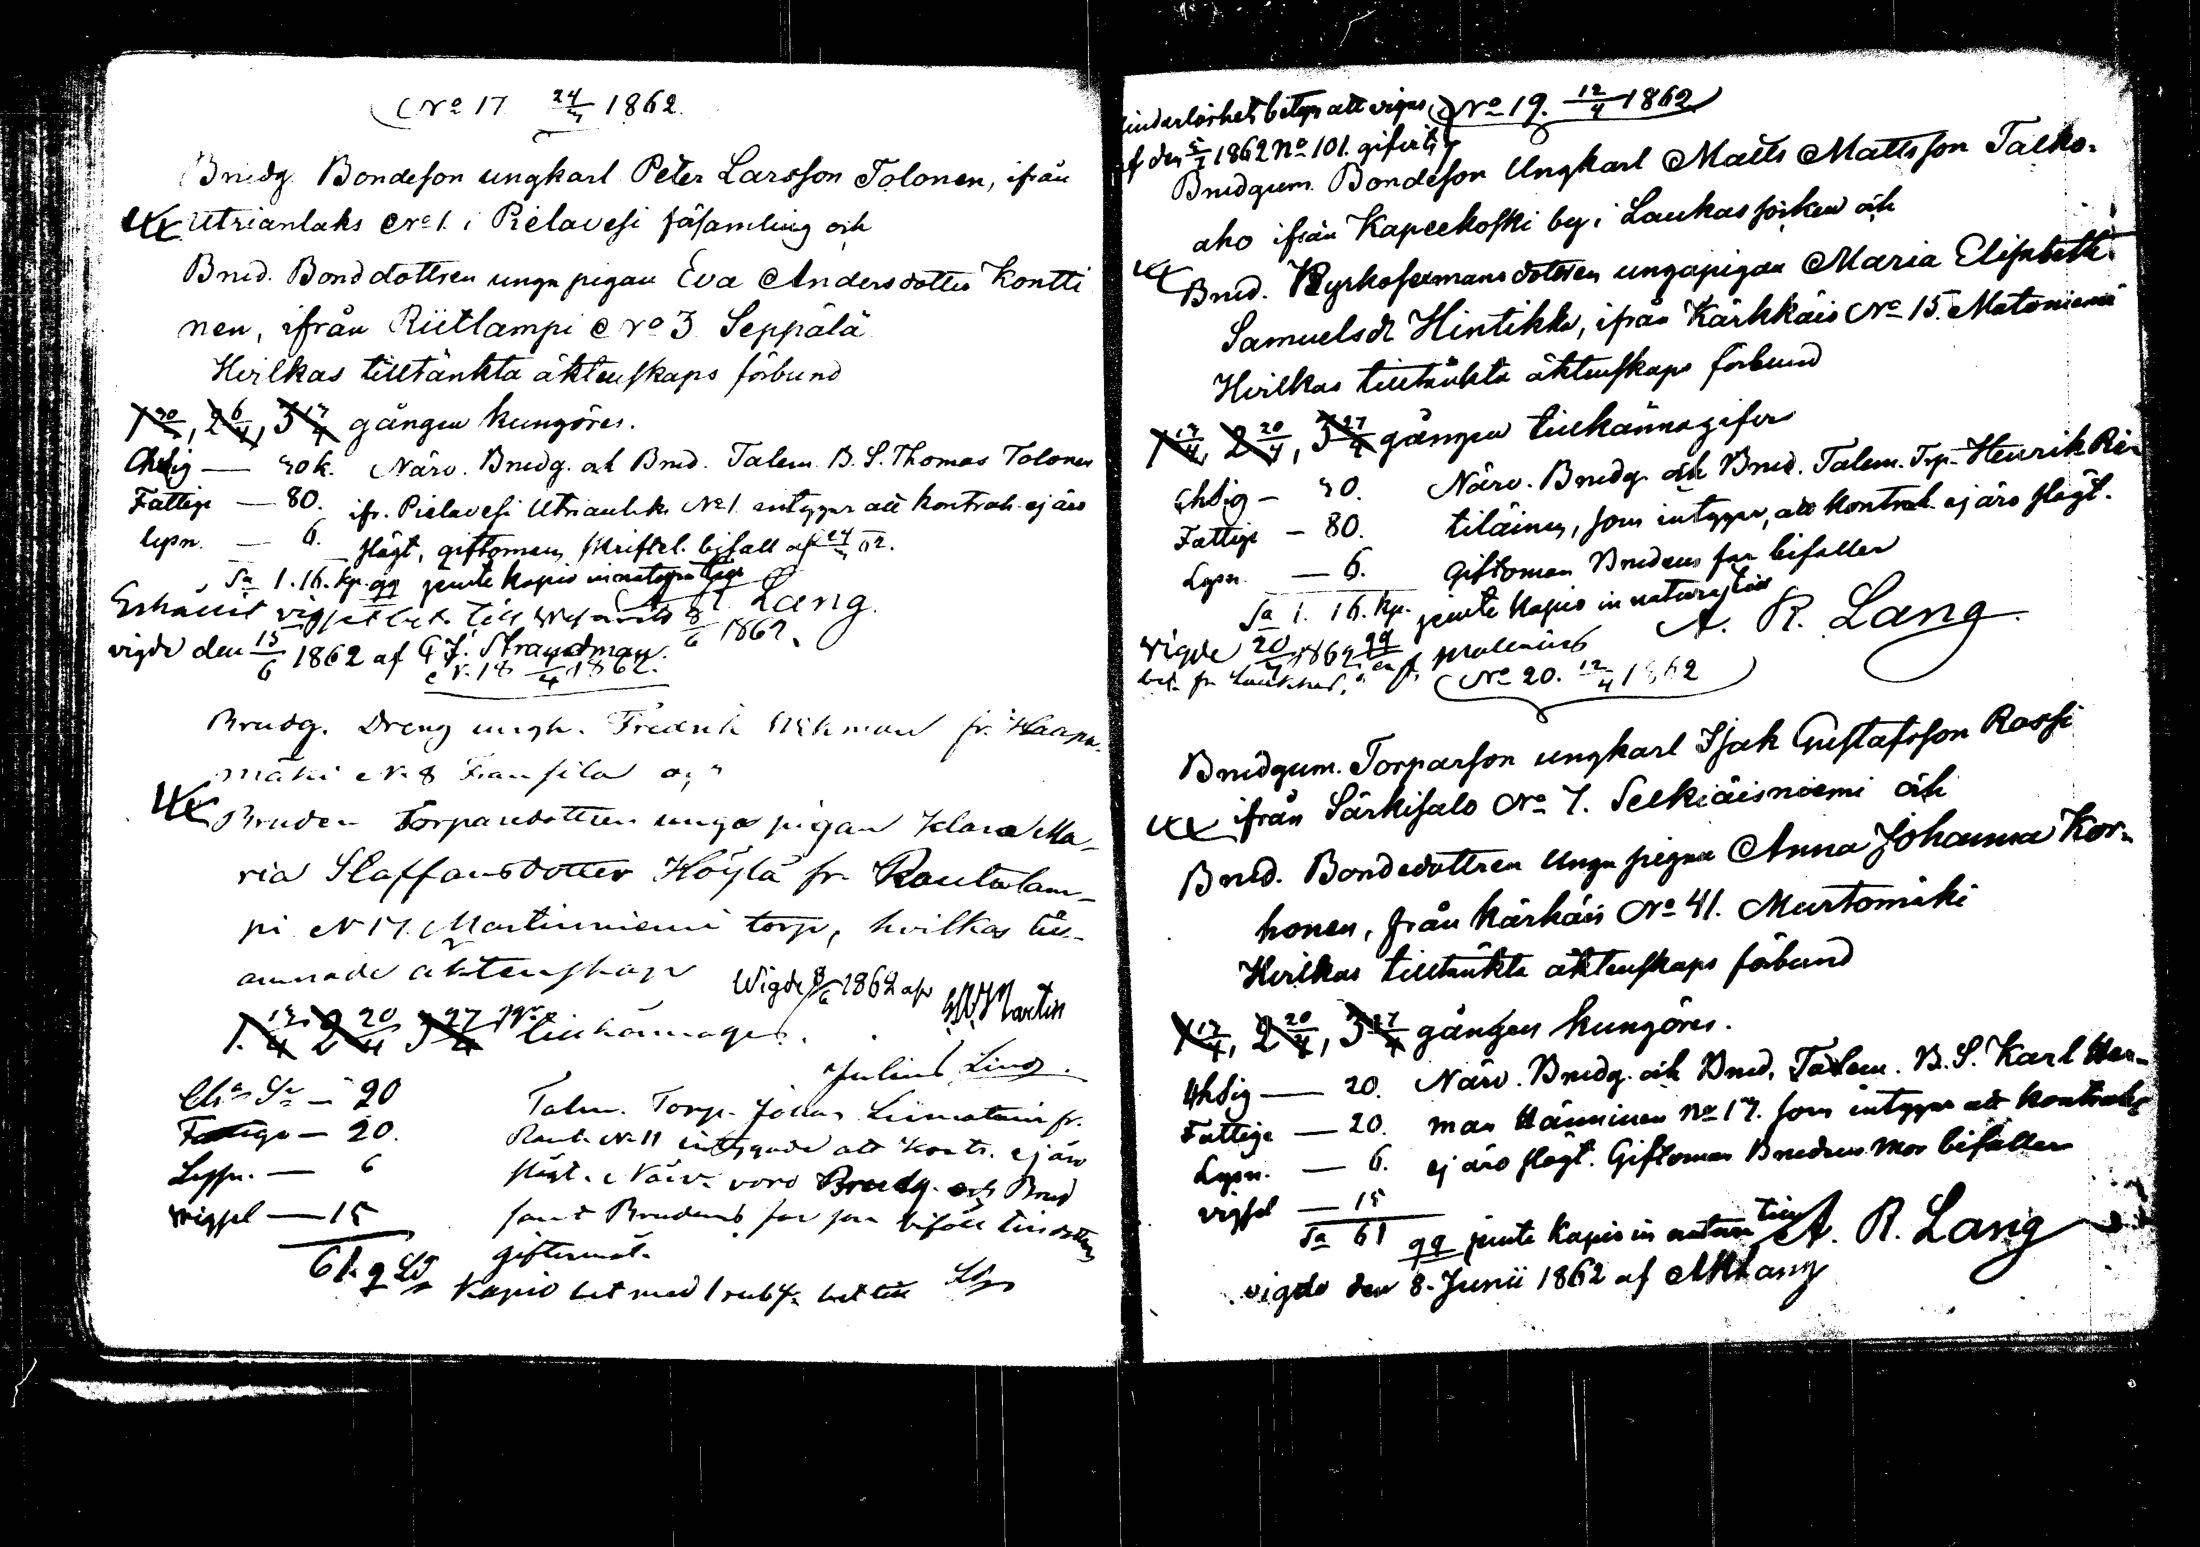 No 17 24/3 1862.
Brudg. Bondeson ungkarl Peter Larsson Tolonen, ifrån
Utrianlaks No 1. i Pielavesi församling och
Brud. Bonddottren unga pigan Eva Andersdotter Kontti
nen, ifrån Riitlampi No 3 Seppälä
Hvilkas tilltänkta äktenskaps förbund
1 30/3, 2 6/4, 3 13/4 gången kungöres.
30 k. Närv. Brudg. och Brud. Talem. B. S. Thomas Tolonen
Fattige — 80. ifr. Pielavesi No 1. intygar att kontrah. ej äro
Lysn. — 6. slägt, giftomans skriftel. bifall af 24/3 62.
Sa 1. 16. kp. qq jemte kapio in natura
Lang.
8/6 1862.
vigde den 15/6 1862 af G. J. Strandman.
N. 18 /4 1862.
Brudg. Dreng ungk. Fredrik fr. Haapa-
mäki N. 8 Fransila o,
Bruden Torparedottren unga pigan Klara Ma-
ria Staffansdotter Höylä fr. Rautalam-
pi N 17. Martinniemi torp, hvilkas till-
ämnade äktenskap
Wigde 8/6 1862 af Martin
1. 13/4 2 20/4 3 27/4 tillkännages.
Julius Ling.
20 Talm. Torp. Johan Liimatain fr.
Fattige — 20. Raut. No 11 intygade att Kontr. ej äro
Lysn. — 6 slägt. Närv. voro Brudg. och Brud
vigsel — 15 samt Brudens far som biföll
61. q giftermål.
Kapio bet med 1 rub
hinderlöshets betyg att vigas,
af den 5/5 1862 No 101. gifvit
No 19. 12/4 1862
Brudgum. Bondeson Ungkarl Matts Mattsson Talko-
aho ifrån Kapeekoski by i Laukas socken och
Brud. Kyrkosexmans dottren ungapigan Maria Elisabeth
Samuelsdr Hintikka, ifrån Kärkkäis No 15. Matoniemi
Hvilkas tilltänkta äktenskaps förbund
1 13/4, 2 20/4, 3 27/4 gången tillkännagifves
30. Närv. Brudg. och Brud. Talem. Trp. Henrik Rii-
Fattige — 80. tiläinen, som intygar, att kontrah. ej äro slägt.
Lysn. — 6. Giftoman Brudens far bifaller
Sa 1. 16. kp. jemte kapio in natura
A. R. Lang.
vigde 20/ 1862
No 20. 12/4 1862
Brudgum. Torparson ungkarl Isak Gustafsson Rossi
ifrån Särkisalo No 7. Selkiäisniemi och
Brud. Bondedottren Unga pigan Anna Johanna Kor-
honen, från Kärkäis No 41. Murtomäki
Hvilkas tilltänkta äktenskaps förbund
1 13/4, 2 20/4, 3 27/4 gången kungöres.
20. Närv. Brudg. och Brud. Talem. B. S. Karl Her-
Fattige — 20. man Hänninen No 17. som intygar att kontrah.
Lysn. — 6. ej äro slägt. Giftoman Brudens mor bifaller
vigsel — 15
Sa 61 qq jemte kapio in natura A. R. Lang
vigde den 8. Junii 1862 af ARLang